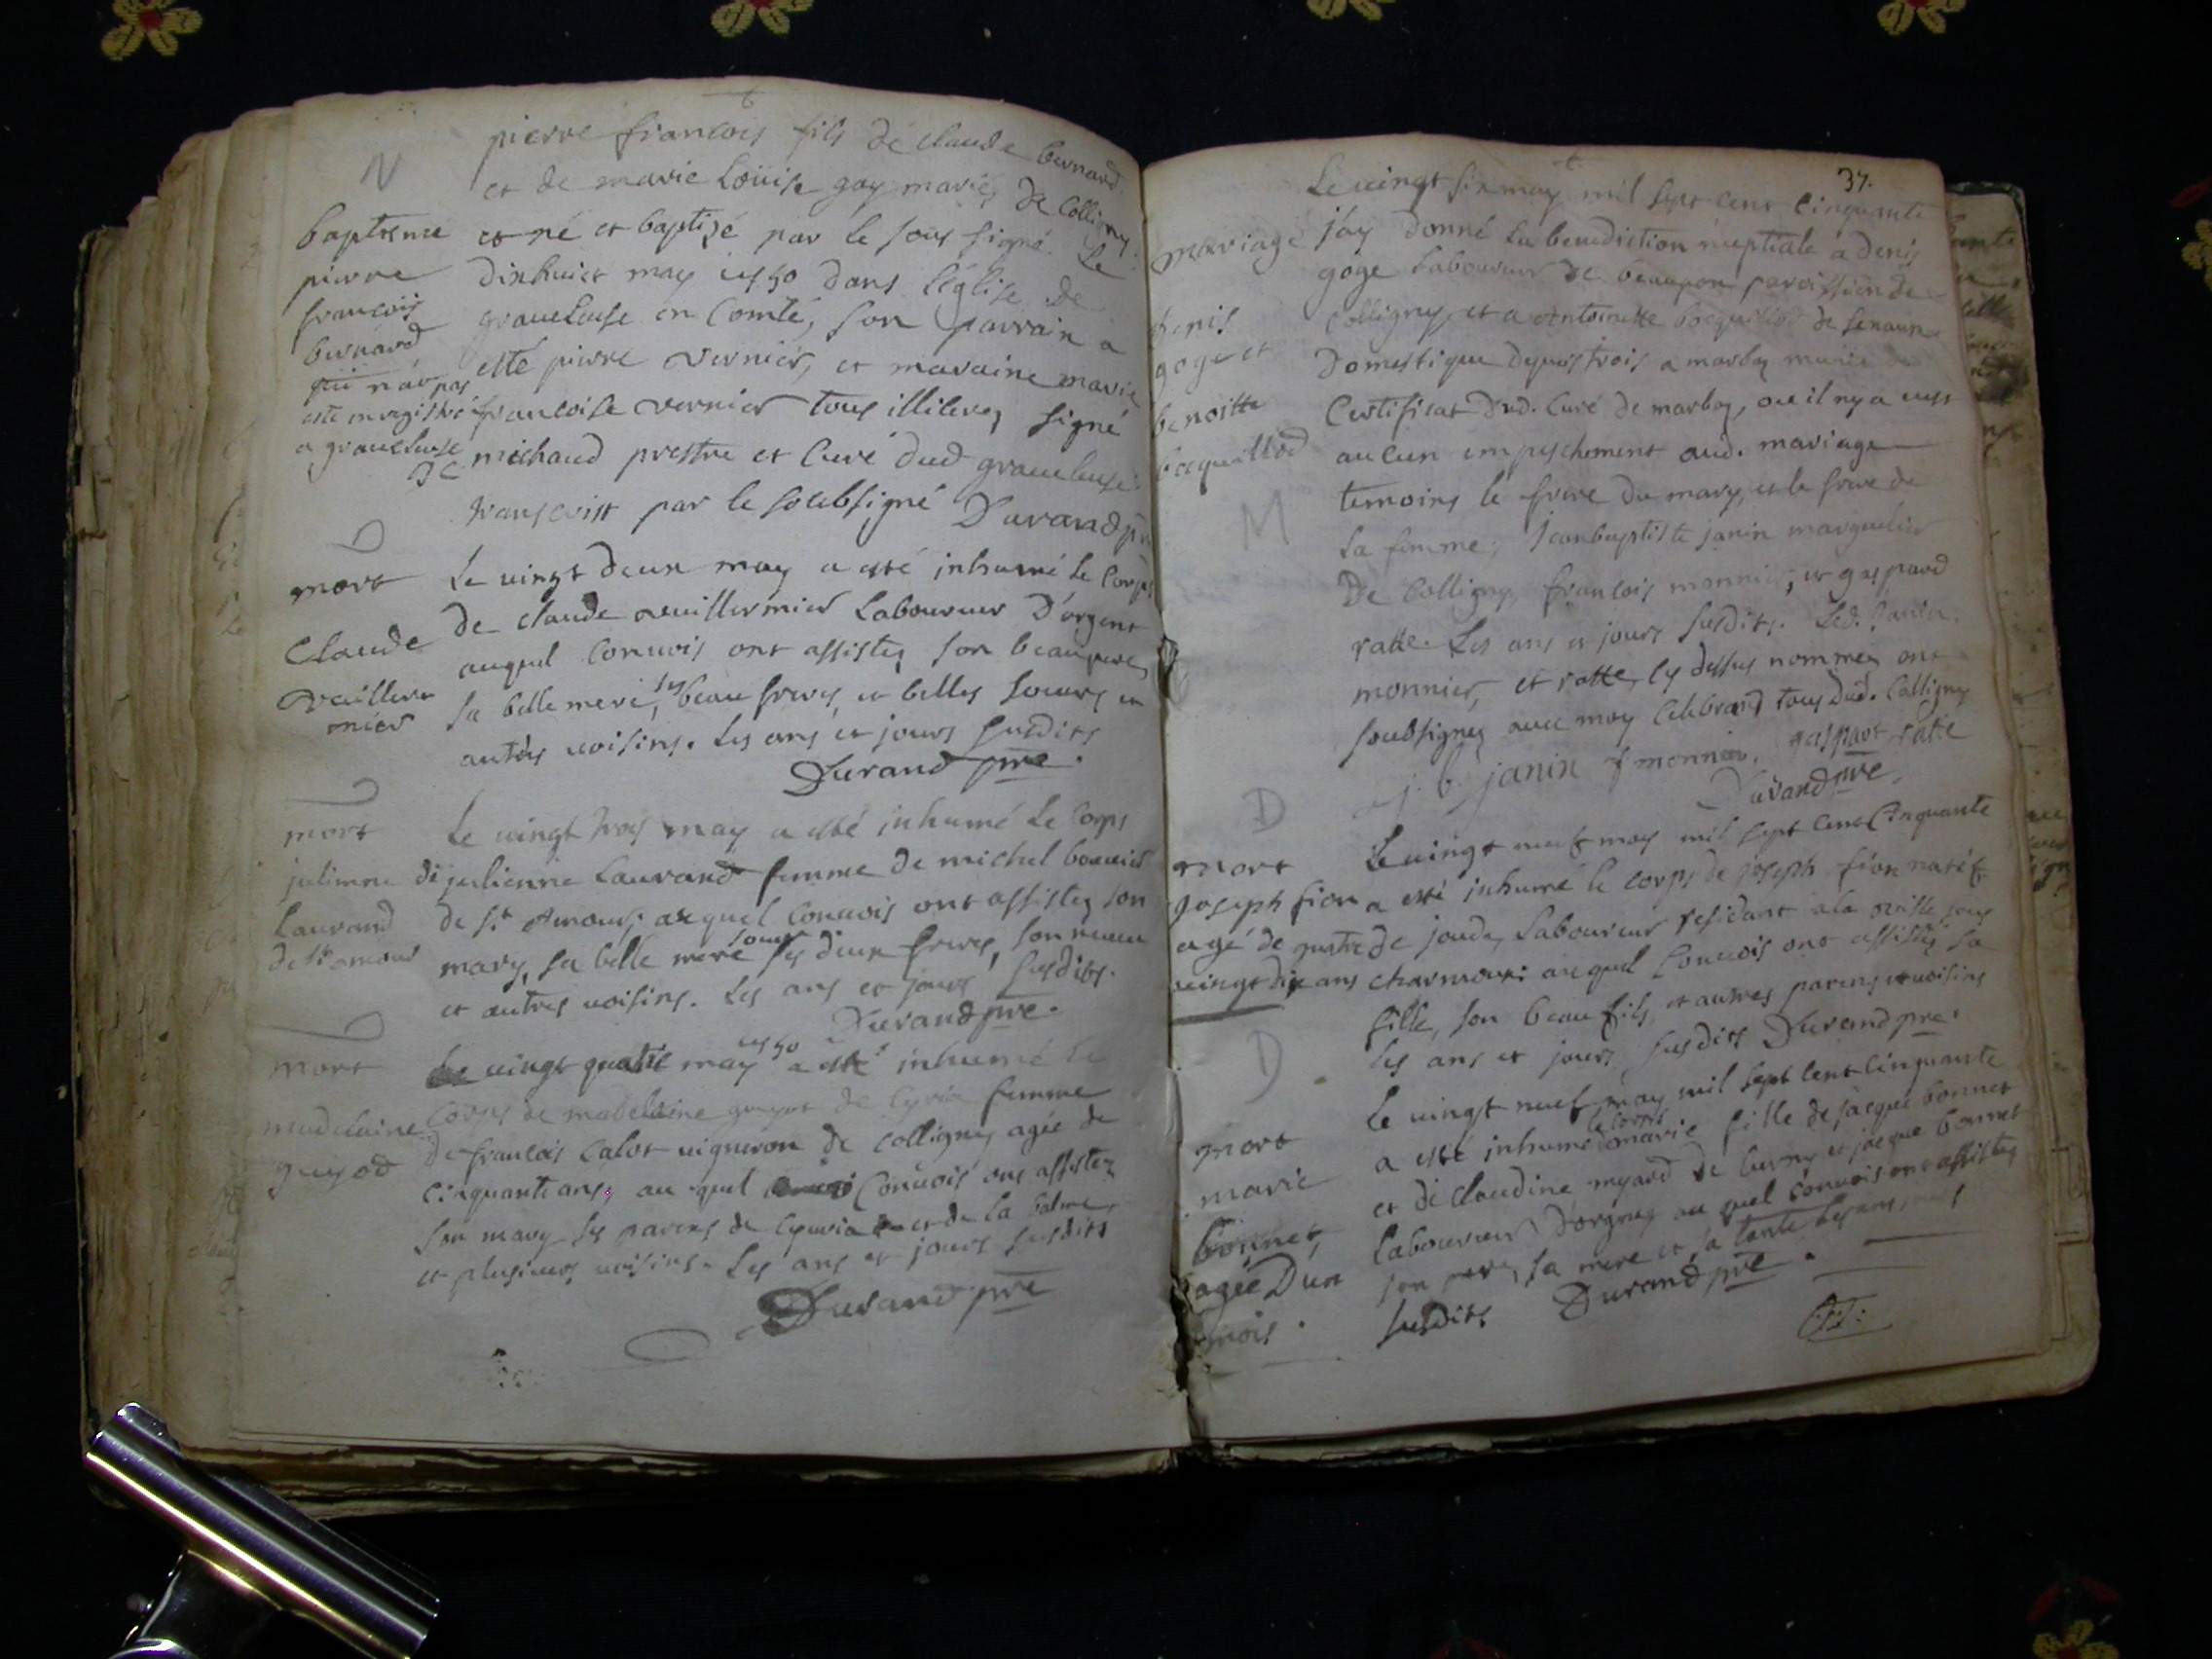 N
pierre francois fils de claude bernard
et de marie Loüise gay mariés de Colligny.
baptesme
pierre
francois
bernard
qui n'a pas
esté enregistré
a grauelouse
est né et baptizé par le sous signé. Le
dixhuict may 1750 dans l'église de
grauelouse en Comté, son parrain a
esté pierre vernier, et maraine marie
francoise vernier tous illiterez signé
michaud prestre et Curé dud grauelouse.
transcrist par le soubsigné Durand pre
mort
Claude
Vuiller
mier
Le vingt deux may a esté inhumé le Corps
de claude vuillermier Laboureur D'orgent
auquel Convois ont assistez son beaupere,
sa belle mere, ses beau freres et belles soeurs et
autres voisins. Les ans et jours susdits
Durand pre.
mort
julienne
Laurand
de st amour
Le vingt trois may a esté inhumé Le Corps
de julienne Laurand femme de michel bouvier
de st Amour; auquel Convois ont assistez son
mary, sa belle mere soeur ses deux freres, son neveu
et autres voisins. Les ans et jours susdits.
Durand pre.
mort
madelaine
guyod
Le vingt quatre may 1750 a esté inhumé Le
Corps de madelaine guyot de Cyria femme
de francois Calot vigneron de Colligny agée de
Cinquante ans, au quel Convois ont assistez
son mary ses parens de Cyuria et de La balme,
et plusieurs voisins. Les ans et jours susdits
Durand pre
37.
mariage
denis
goge et
benoitte
bocquillod
M
Le vingt six may mil sept cent Cinquante
j'ay Donné La benediction nuptiale a denis
goge Laboureur de beaupon paroissien de
Colligny, et a Antoinette bocquillod de senaux
Domestique depuis trois a marboz munie de
Certificat dud. Curé de marboz, ou il ny a eust
aucun empeschement aud. mariage
temoins le frere du mary, et le frere de
La femme, Jean baptiste janin marguelier
De Colligny francois monnier, et gaspard
ratte. Les ans et jours susdits. Led. Janin.
monnier, et ratte, cy dessus nommez ont
soubsignez avec moy Celebrand tous dud. Colligny
j. b. janin f monnier, gaspart ratte
Durand pre.
D
mort
Joseph fion
agé de quatre
vingt dix ans
Le vingt neuf may mil sept cent Cinquante
a esté inhumé le Corps de joseph fion natif
de joude, Laboureur residant a la ville sous
charmoux: auquel Convois ont assistés sa
fille, son beau fils, et autres parens et voisins
Les ans et jours susdits Durand pre.
D
mort
marie
bonnet,
agée D'un
mois.
Le vingt neuf may mil sept cent Cinquante
a esté inhumé le Corps marie fille de jacque bonnet
et de claudine myard de Cuvny et jacque bonnet
Laboureur D'orgney au quel Convois ont assistez
son pere, sa mere et sa tante Les ans, jours
susdits Durand pre.